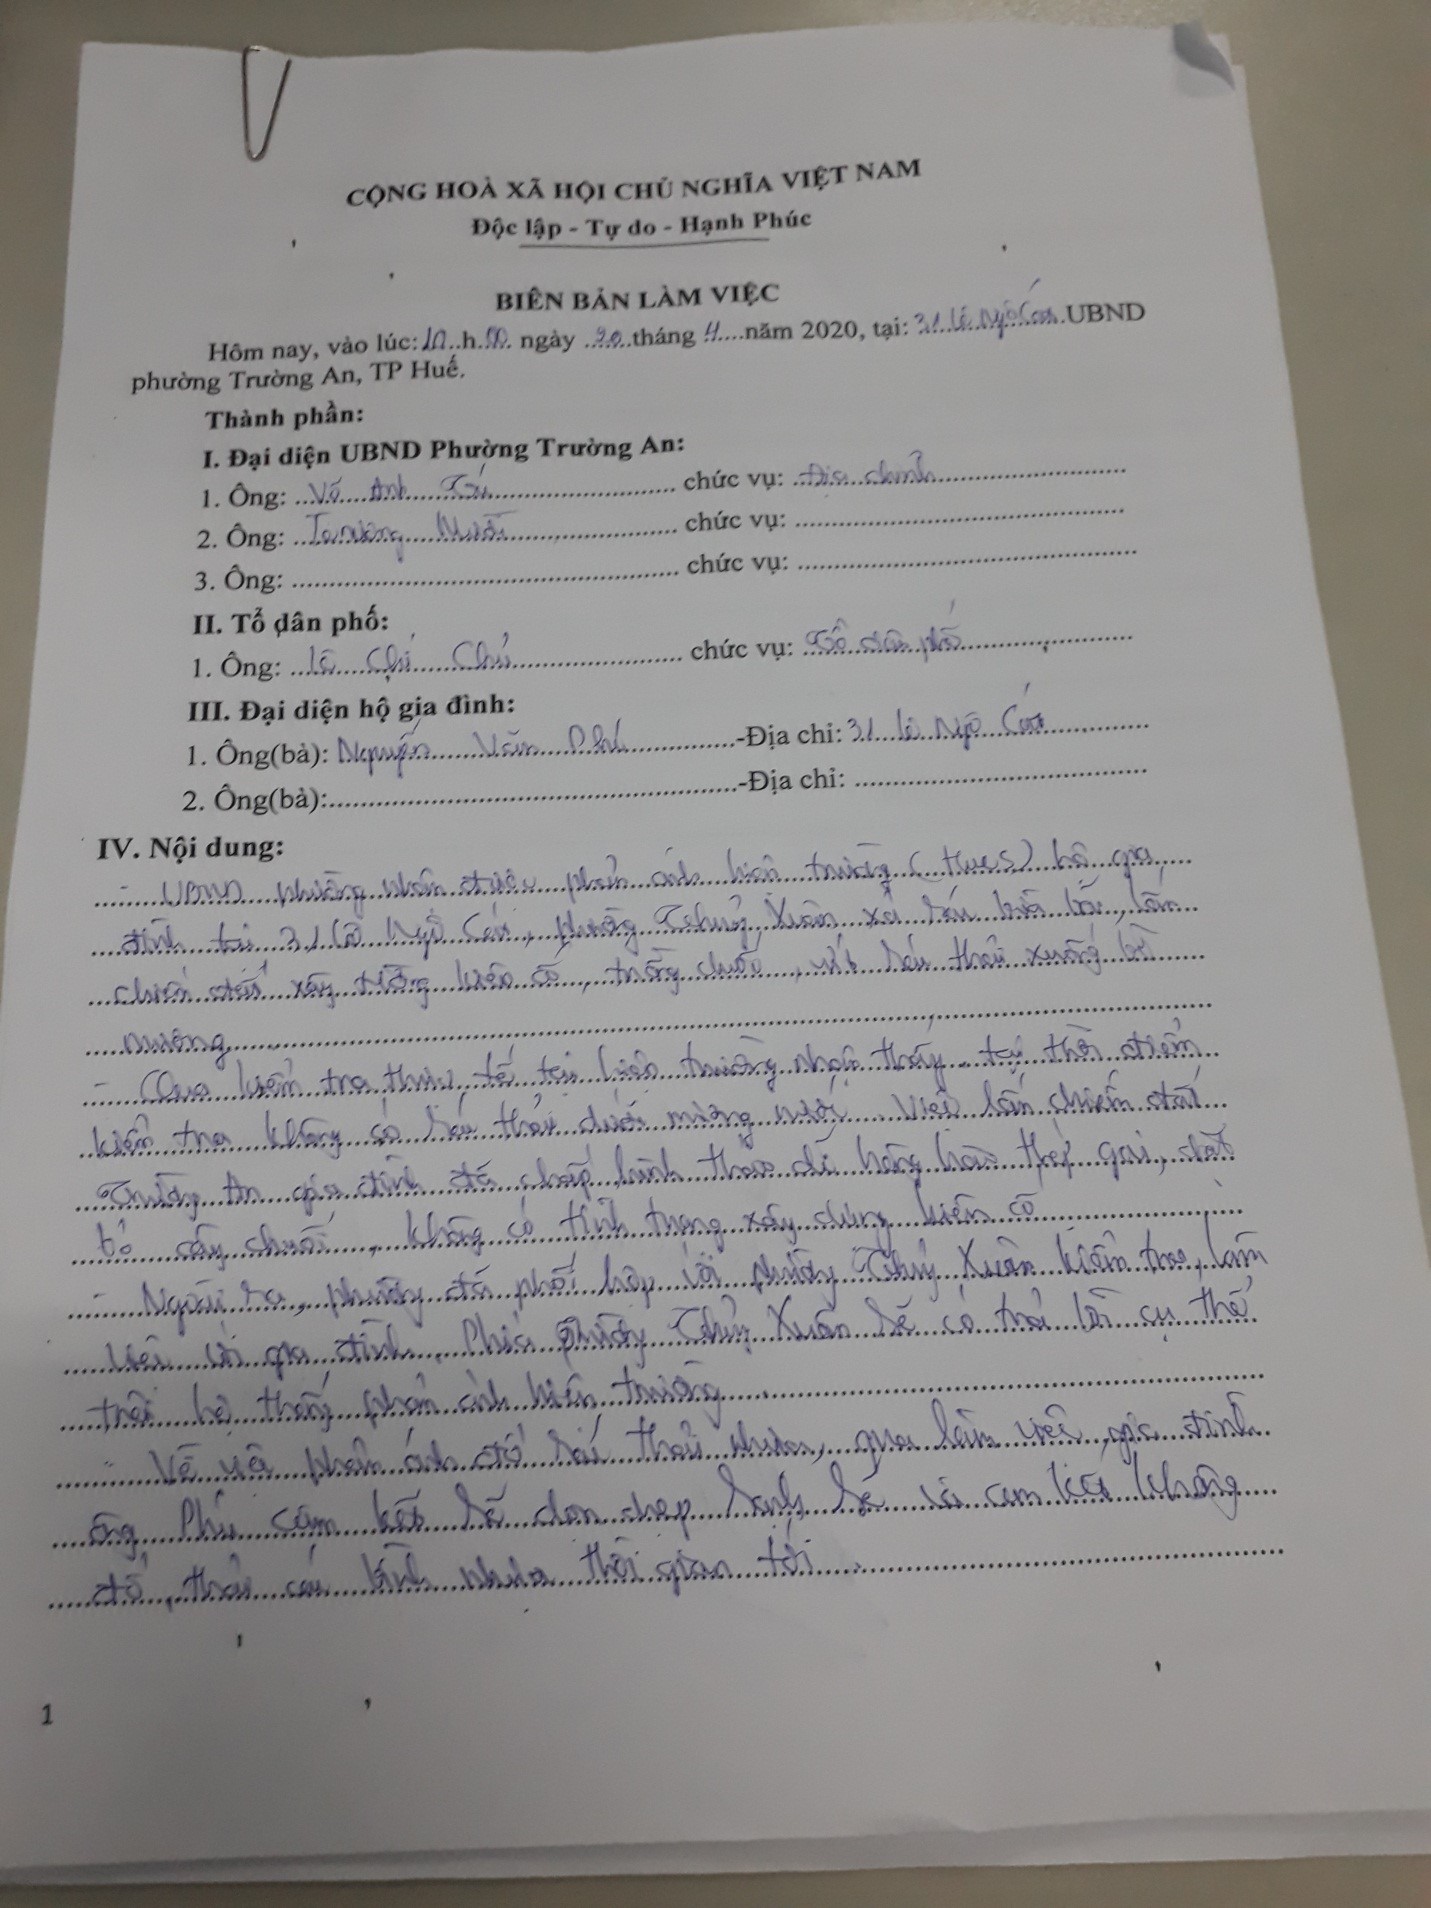 CỘNG HOÀ XÃ HỘI CHỦ NGHĨA VIỆT NAM
Độc lập - Tự do - Hạnh Phúc
BIÊN BẢN LÀM VIỆC
Hôm nay, vào lúc: 10 h 00 ngày 20 tháng 4 năm 2020, tại: 31 Lê Ngô Cát UBND
phường Trường An, TP Huế.
Thành phần:
I. Đại diện UBND Phường Trường An:
1. Ông: Võ Anh chức vụ: Địa chính
2. Ông: Trương chức vụ:
3. Ông: chức vụ:
II. Tổ dân phố:
1. Ông: Lê chức vụ: Tổ dân phố
III. Đại diện hộ gia đình:
1. Ông(bà): Nguyễn Văn Phú -Địa chỉ: 31 Lê Ngô Cát
2. Ông(bà): -Địa chỉ:
IV. Nội dung:
- UBND phường nhận được phản ánh hiện trường (Hues) hộ gia
đình tại 31 Lê Ngô Cát, phường Thuỷ Xuân xả rác bừa bãi, lấn
chiếm đất xây tường kiên cố, trồng chuối, vứt rác thải xuống
mương
- Qua kiểm tra thực tế tại hiện trường nhận thấy tại thời điểm
kiểm tra không có rác thải dưới mương nước. Việc lấn chiếm đất
Trường An gia đình đã chấp hành tháo dỡ hàng rào thép gai, chặt
bỏ cây chuối, không có tình trạng xây dựng kiên cố
- Ngoài ra, phường đã phối hợp với phường Thuỷ Xuân kiểm tra, làm
việc với gia đình. Phía Phường Thuỷ Xuân sẽ có trả lời cụ thể
trên hệ thống phản ánh hiện trường
- Về việc phản ánh đổ rác thải nhựa, qua làm việc, gia đình
ông Phú cam kết sẽ dọn dẹp sạch sẽ và cam kết không
đổ thải nhựa thời gian tới
1